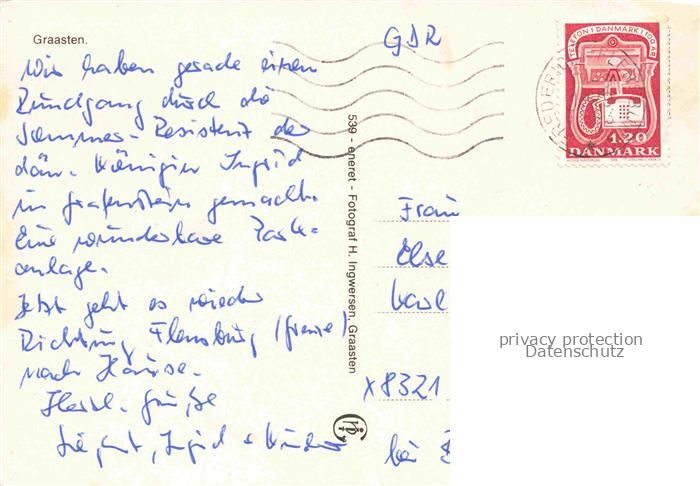 Graasten.
Wir haben gerade einen
Rundgang durch die
Sommer-Residenz der
dän. Königin Ingrid
in Grafenstein gemacht.
Eine wunderbare Park-
anlage.
Jetzt geht es wieder
Richtung Flensburg (Grenze)
nach Hause.
Herzl. Grüße
Siegmut, Ingrid + Kinder
539 - eneret - Fotograf H. Ingwersen, Graasten
GDR
TELEFON I DANMARK I 100 ÅR
1.20
DANMARK
Frau
Else
Karl
X8321
bei
privacy protection
Datenschutz